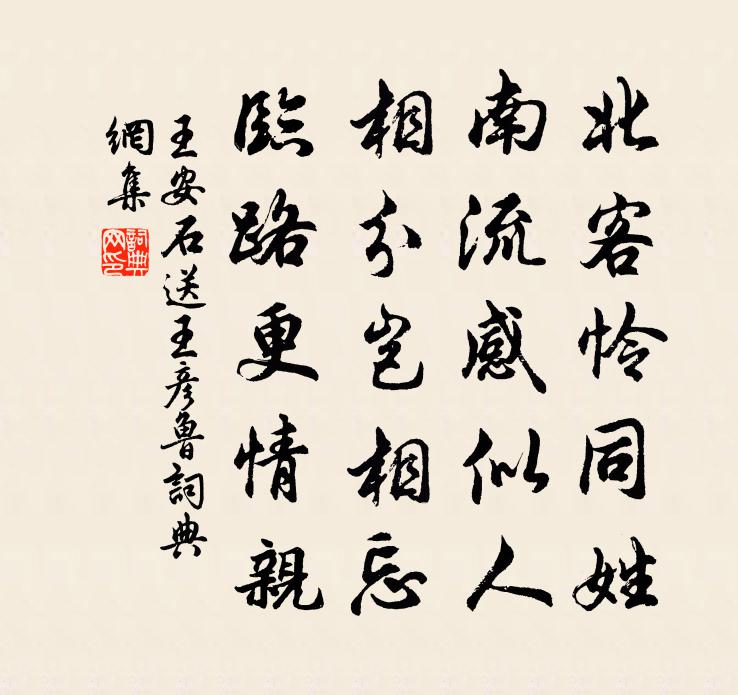 北客怜同姓
南流感似人
相分岂相忘
臨路更情親
王安石送王彥魯詞典
網集
詞典
网印